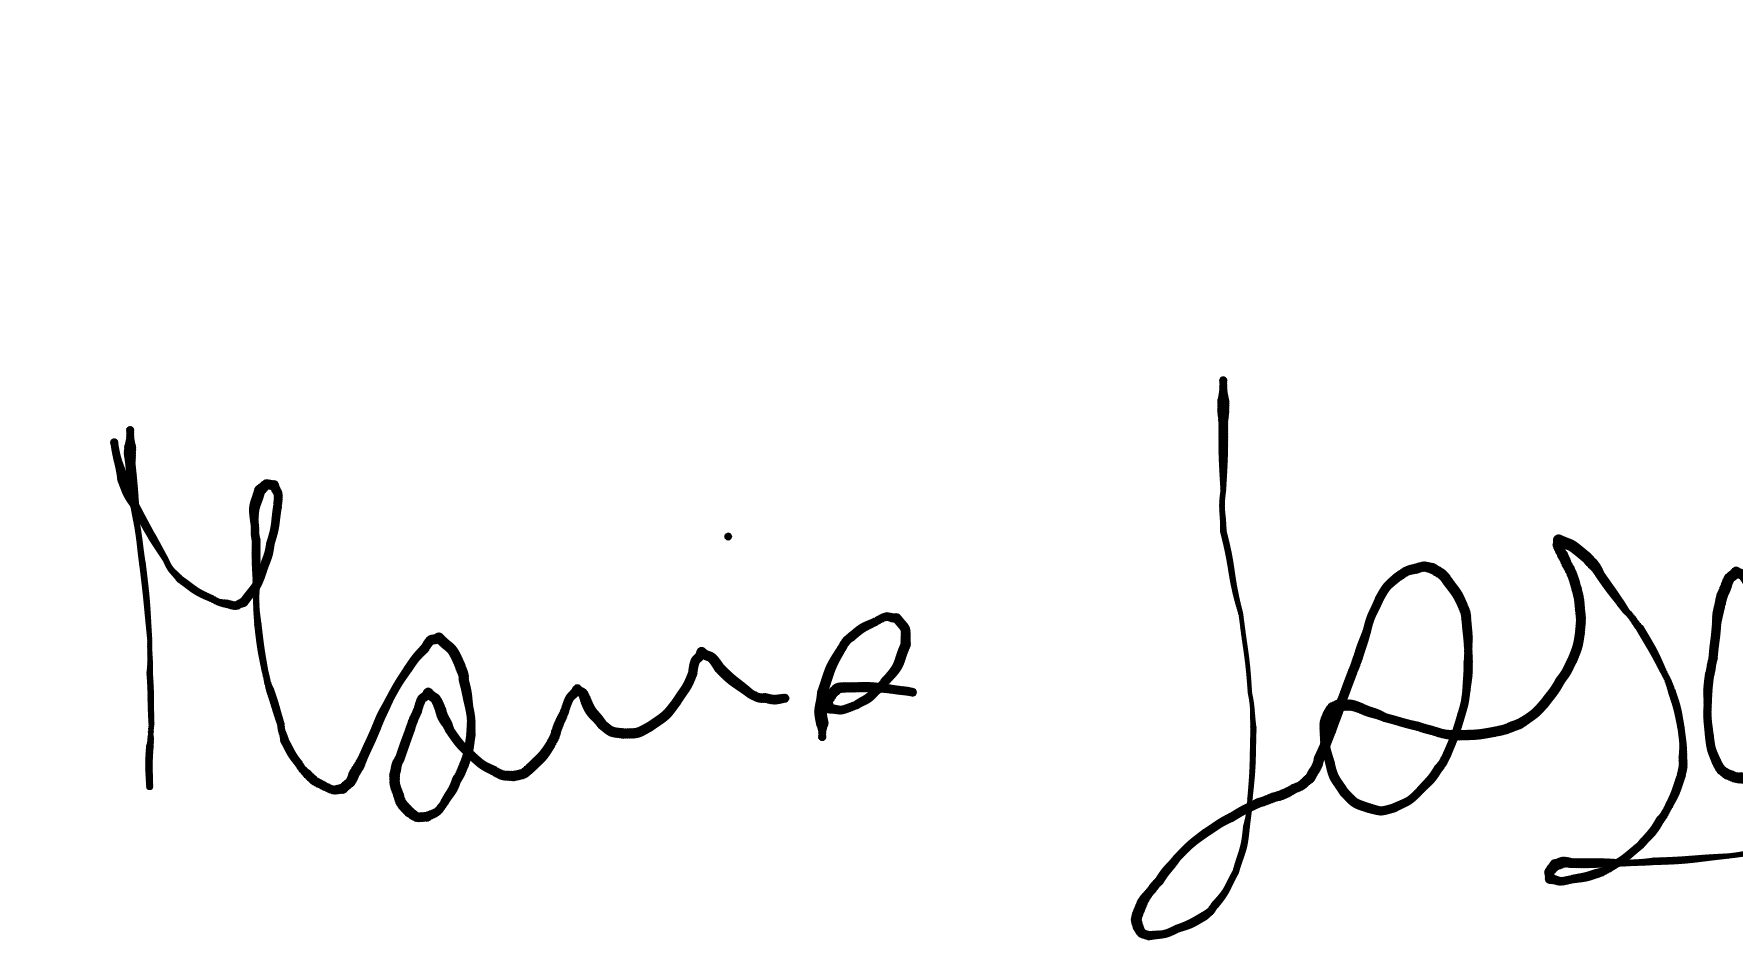 Maria Jos